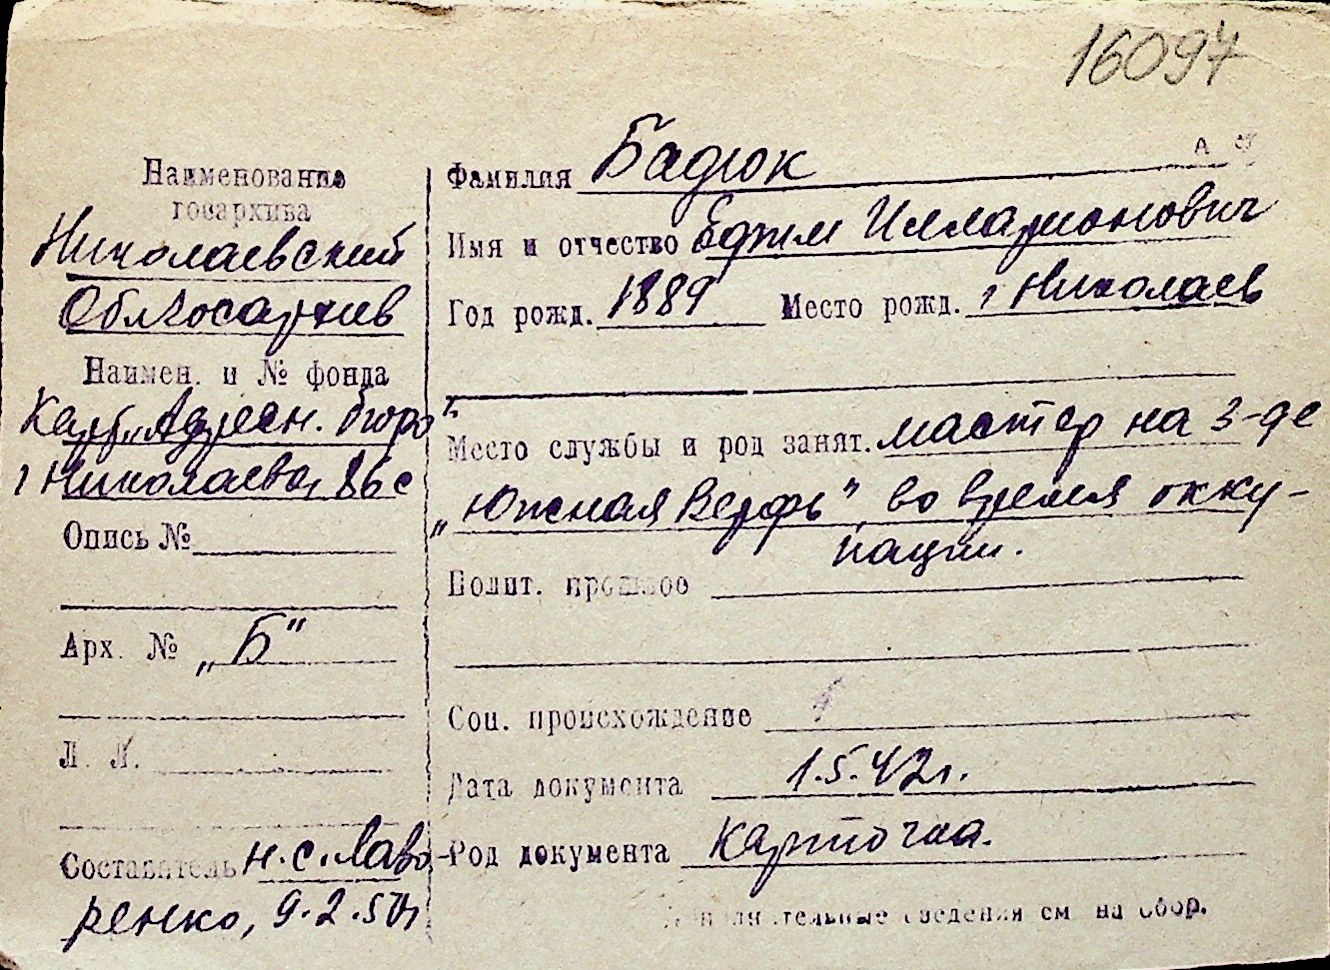 16097
Наименование
госархива
Николаевский
Облгосархив
Наимен. и № фонда
Карт. „Адресн. бюро"
г Николаева, 86с
Опись №
Арх. № „Б"
Л. Л.
Составитель н.с. Лаво-
ренко, 9.2.50г
Фамилия Бадюк
Имя и отчество Ефим Илларионович
Год рожд. 1889 Место рожд. г Николаев
Место службы и род занят. мастер на з-де
„Южная Верфь", во время окку-
пации.
Полит. прошлое
Соц. происхождение
Дата документа 1.5.42г.
Род документа карточка.
Дополнительные сведения см на обор.